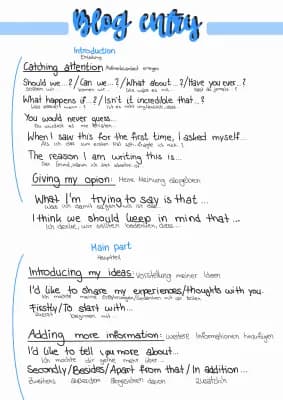 Blog entry
Introduction
Einleitung
Catching attention Aufmerksamkeit erregen
Should we...?/Can we...?/What about...?/Have you ever...?
What happens if...?/Isn't it incredible that...?
You would never guess...
When I saw this for the first time, I asked myself...
Als ich das zum ersten Mal sah, fragte ich mich
The reason I am writing this is...
Giving my opion: Meine Meinung abgeben
What I'm trying to say is that...
Was ich damit sagen will ist das
I think we should keep in mind that...
Ich denke, wir sollten bedenken, dass...
Main part
Hauptteil
Introducing my ideas: Vorstellung meiner Ideen
I'd like to share my experiences/thoughts with you.
Ich möchte meine Erfahrungen/Gedanken mit dir teilen
Firstly/To start with...
Zuerst beginnen mit...
Adding more information: weitere Informationen hinzufügen
I'd like to tell you more about...
Ich möchte dir gerne mehr über...
Secondly/Besides/Apart from that/In addition...
Zweitens außerdem abgesehen davon zusätzlich